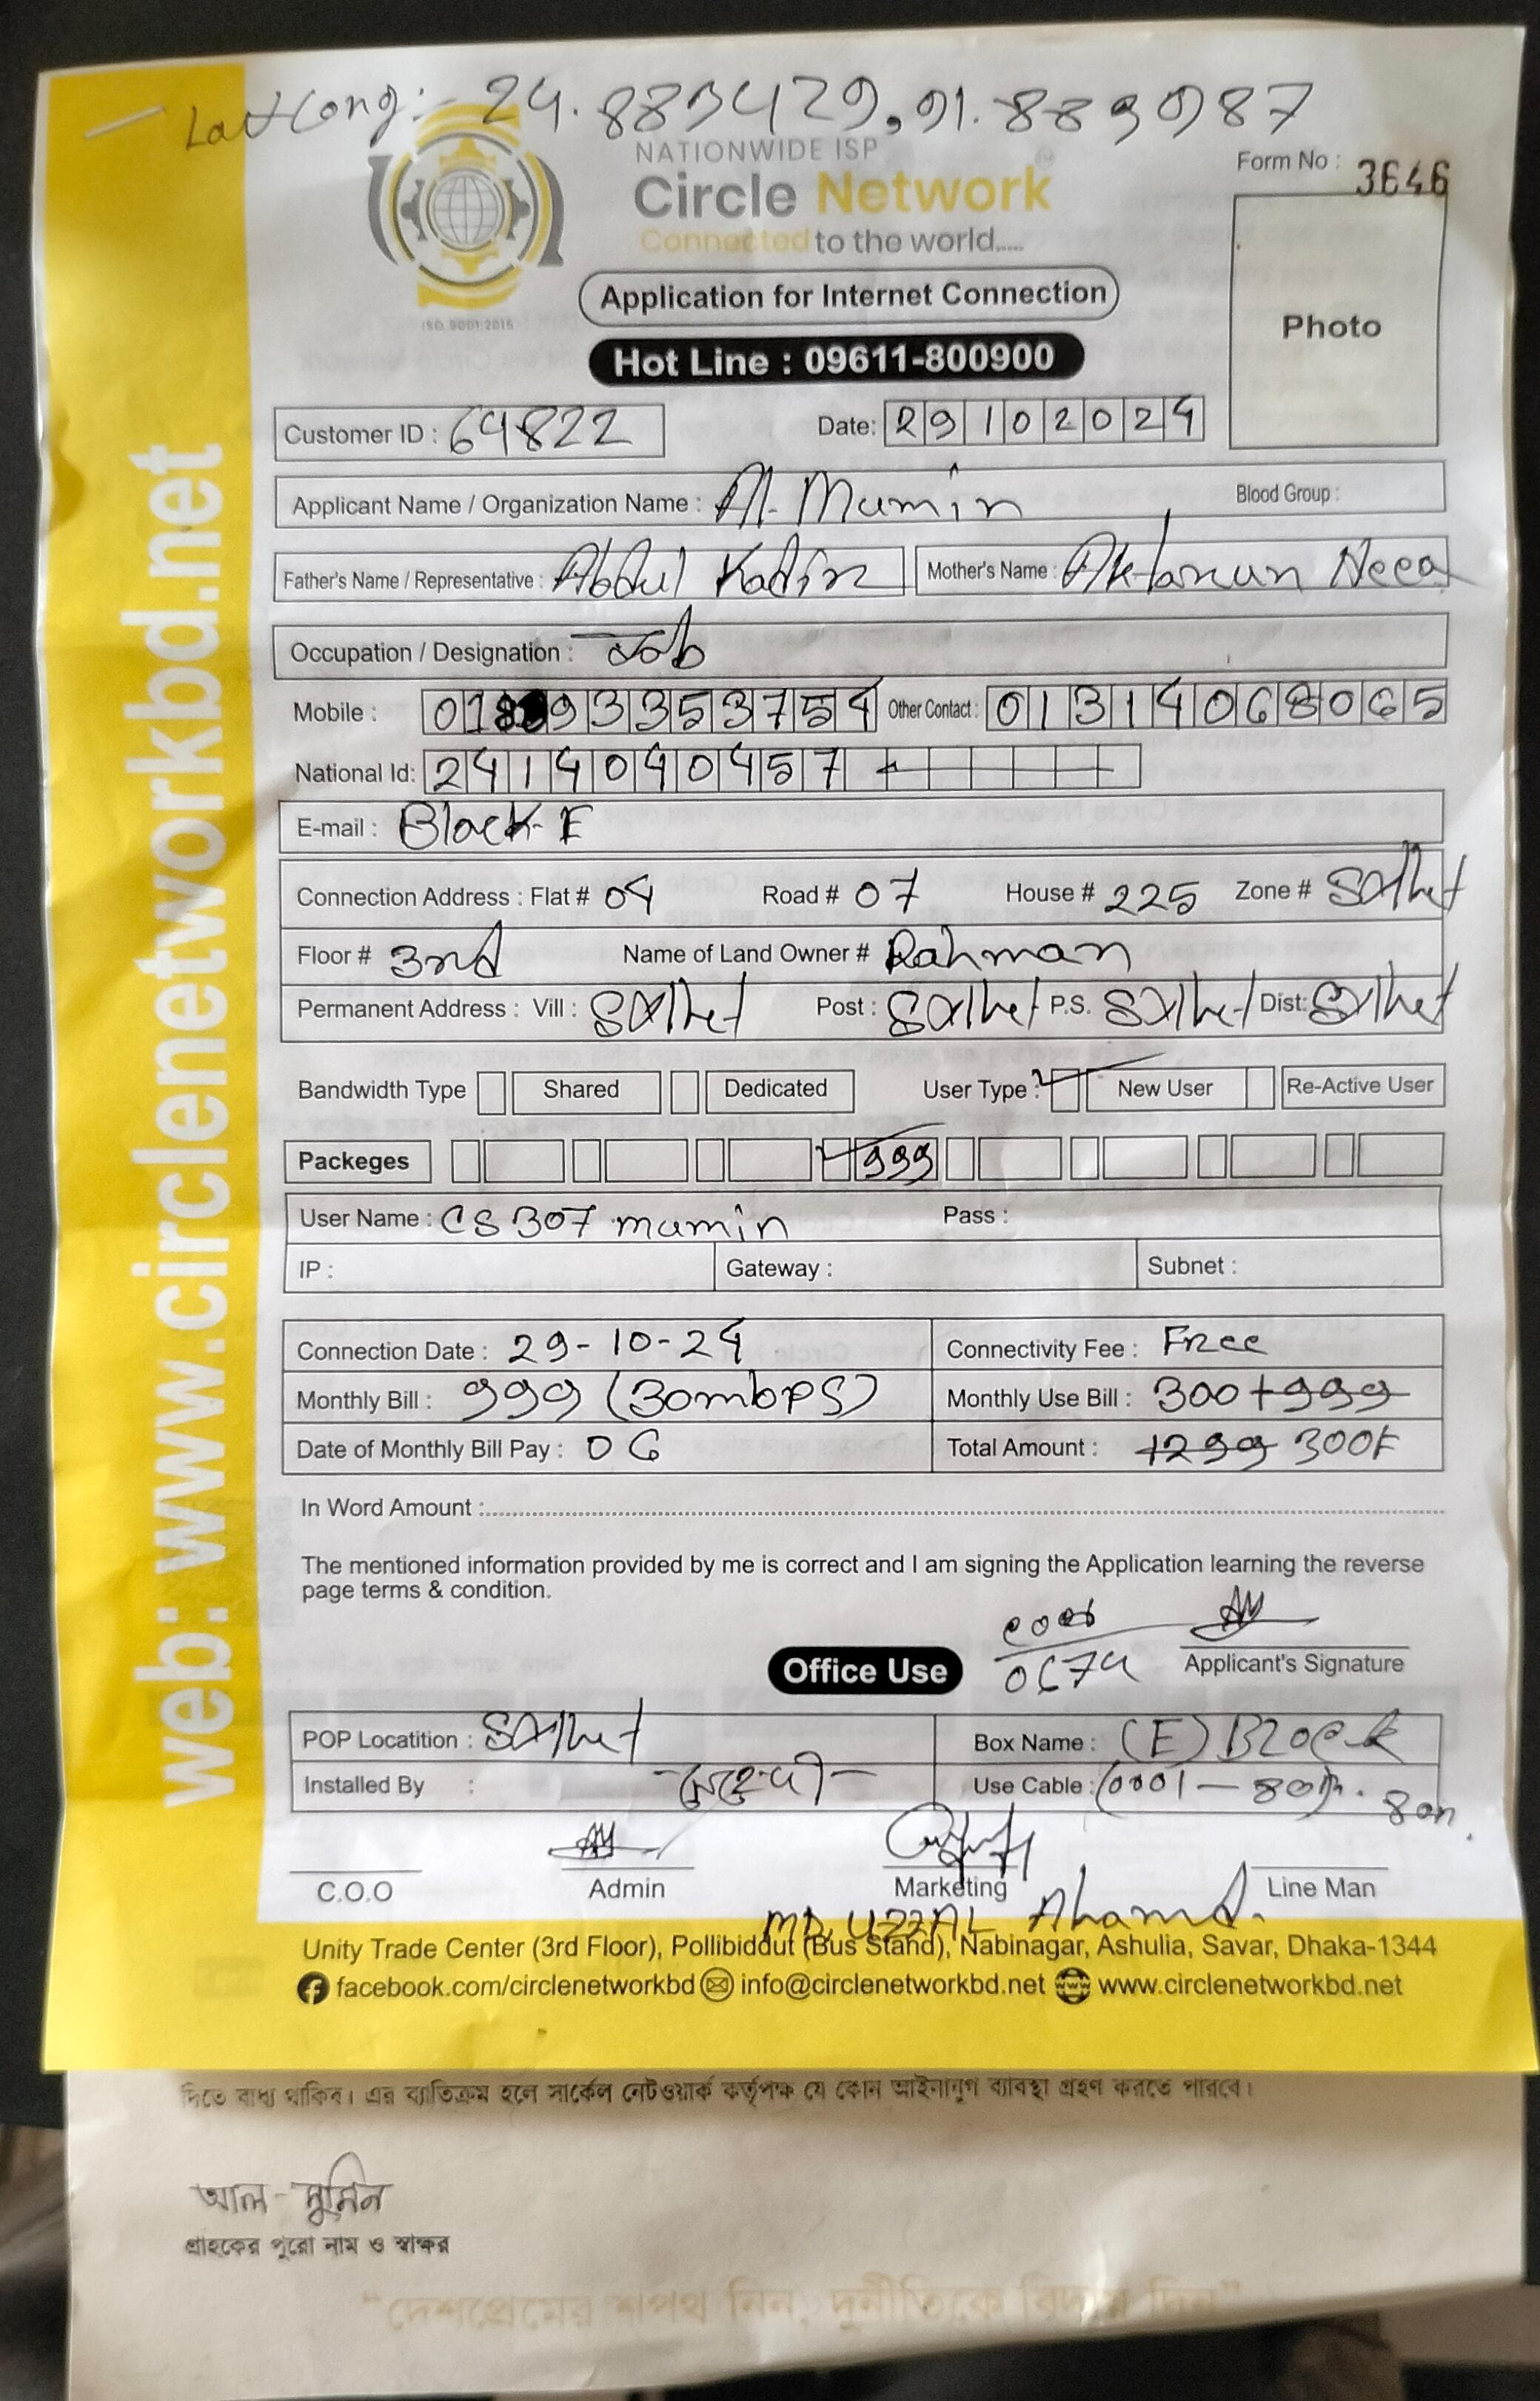 Lat Long:- 24.883429, 91.8839987
NATIONWIDE ISP
Circle Network
Connected to the world.....
ISO 9001:2015
Form No : 3646
Photo
Application for Internet Connection
Hot Line : 09611-800900
Customer ID : 64822 Date: 29102024
Applicant Name / Organization Name : Al-Mumin Blood Group :
Father's Name / Representative : Abdul Kadir Mother's Name : Aktarun Neea
Occupation / Designation : Job
Mobile : 01 933353754 Other Contact : 01314068065
National Id: 2414040457
E-mail : Block-E
Connection Address : Flat # 04 Road # 07 House # 225 Zone # Sylhet
Floor # 3rd Name of Land Owner # Rahman
Permanent Address : Vill : Sylhet Post : Sylhet P.S. Sylhet Dist: Sylhet
Bandwidth Type Shared Dedicated User Type : New User Re-Active User
Packeges 999
User Name : CS307 mumin Pass :
IP : Gateway : Subnet :
Connection Date : 29-10-24 Connectivity Fee : Free
Monthly Bill : 999 (30mbps) Monthly Use Bill : 300+999
Date of Monthly Bill Pay : 06 Total Amount : 1299 300
In Word Amount :
The mentioned information provided by me is correct and I am signing the Application learning the reverse
page terms & condition.
Office Use Applicant's Signature
POP Locatition : Sylhet Box Name : (E) Block
Installed By : Use Cable :
C.O.O Admin Marketing Line Man
MD, UZZAL Ahamd.
Unity Trade Center (3rd Floor), Pollibiddut (Bus Stand), Nabinagar, Ashulia, Savar, Dhaka-1344
facebook.com/circlenetworkbd info@circlenetworkbd.net www.circlenetworkbd.net
web: www.circlenetworkbd.net
দিতে বাধ্য থাকিব। এর ব্যতিক্রম হলে সার্কেল নেটওয়ার্ক কর্তৃপক্ষ যে কোন আইনানুগ ব্যাবস্থা গ্রহণ করতে পারবে।
আল-মুমিন
গ্রাহকের পুরো নাম ও স্বাক্ষর
"দেশপ্রেমের শপথ নিন, দুর্নীতিকে বিদায় দিন"